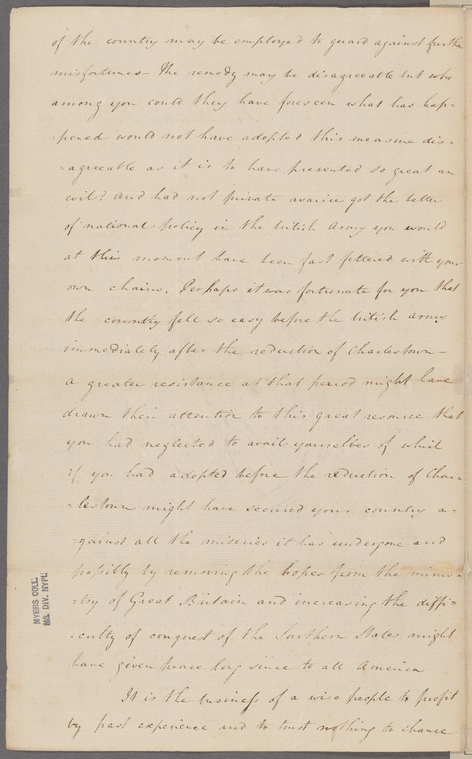 of the country may be employed to guard against further
misfortunes - The remedy may be disagreeable but who
among you could they have foreseen what has hap-
-pened would not have adopted this measure dis-
-agreeable as it is to have prevented so great an
evil? and had not private avarice got the better
of national policy in the british army you would
at this moment have been fast fettered with your
own chains. Perhaps it was fortunate for you that
the country fell so easy before the british army
immediately after the reduction of Charlestown -
a greater resistance at that period might have
drawn their attention to this great resource that
you had neglected to avail yourselves of which
if you had adopted before the reduction of Char-
-lestown might have secured your country a-
-gainst all the miseries it has undergone and
possibly by removing the hopes from the minis-
-try of Great Britain and increasing the diffi-
-culty of conquest of the Southern States might
have given peace long since to all America
It is the business of a wise people to profit
by past experience and to trust nothing to chance
MYERS COLL.
MS. DIV. NYPL